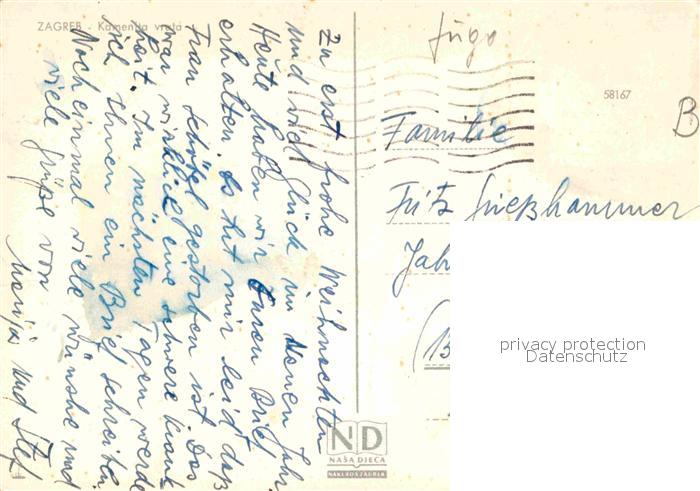 ZAGREB - Kamenita vrata
Zu erst frohe Weihnachten
und viel Glück im Neuen Jahr.
Heute haben wir Euren Brief
erhalten. Es tut mir leid daß
Frau gestorben ist. Das
war wirklich eine schwere Krank
heit. Im nächsten Tagen werde
ich Ihnen ein Brief schreiben.
Noch einmal viele wünshe und
viele Grüße von
Marija und Stef
Jugo
58167
B
Familie
Fritz Grießhammer
Jah
(13
privacy protection
Datenschutz
ND
NAŠA DJECA
NAKLADA ZAGREB